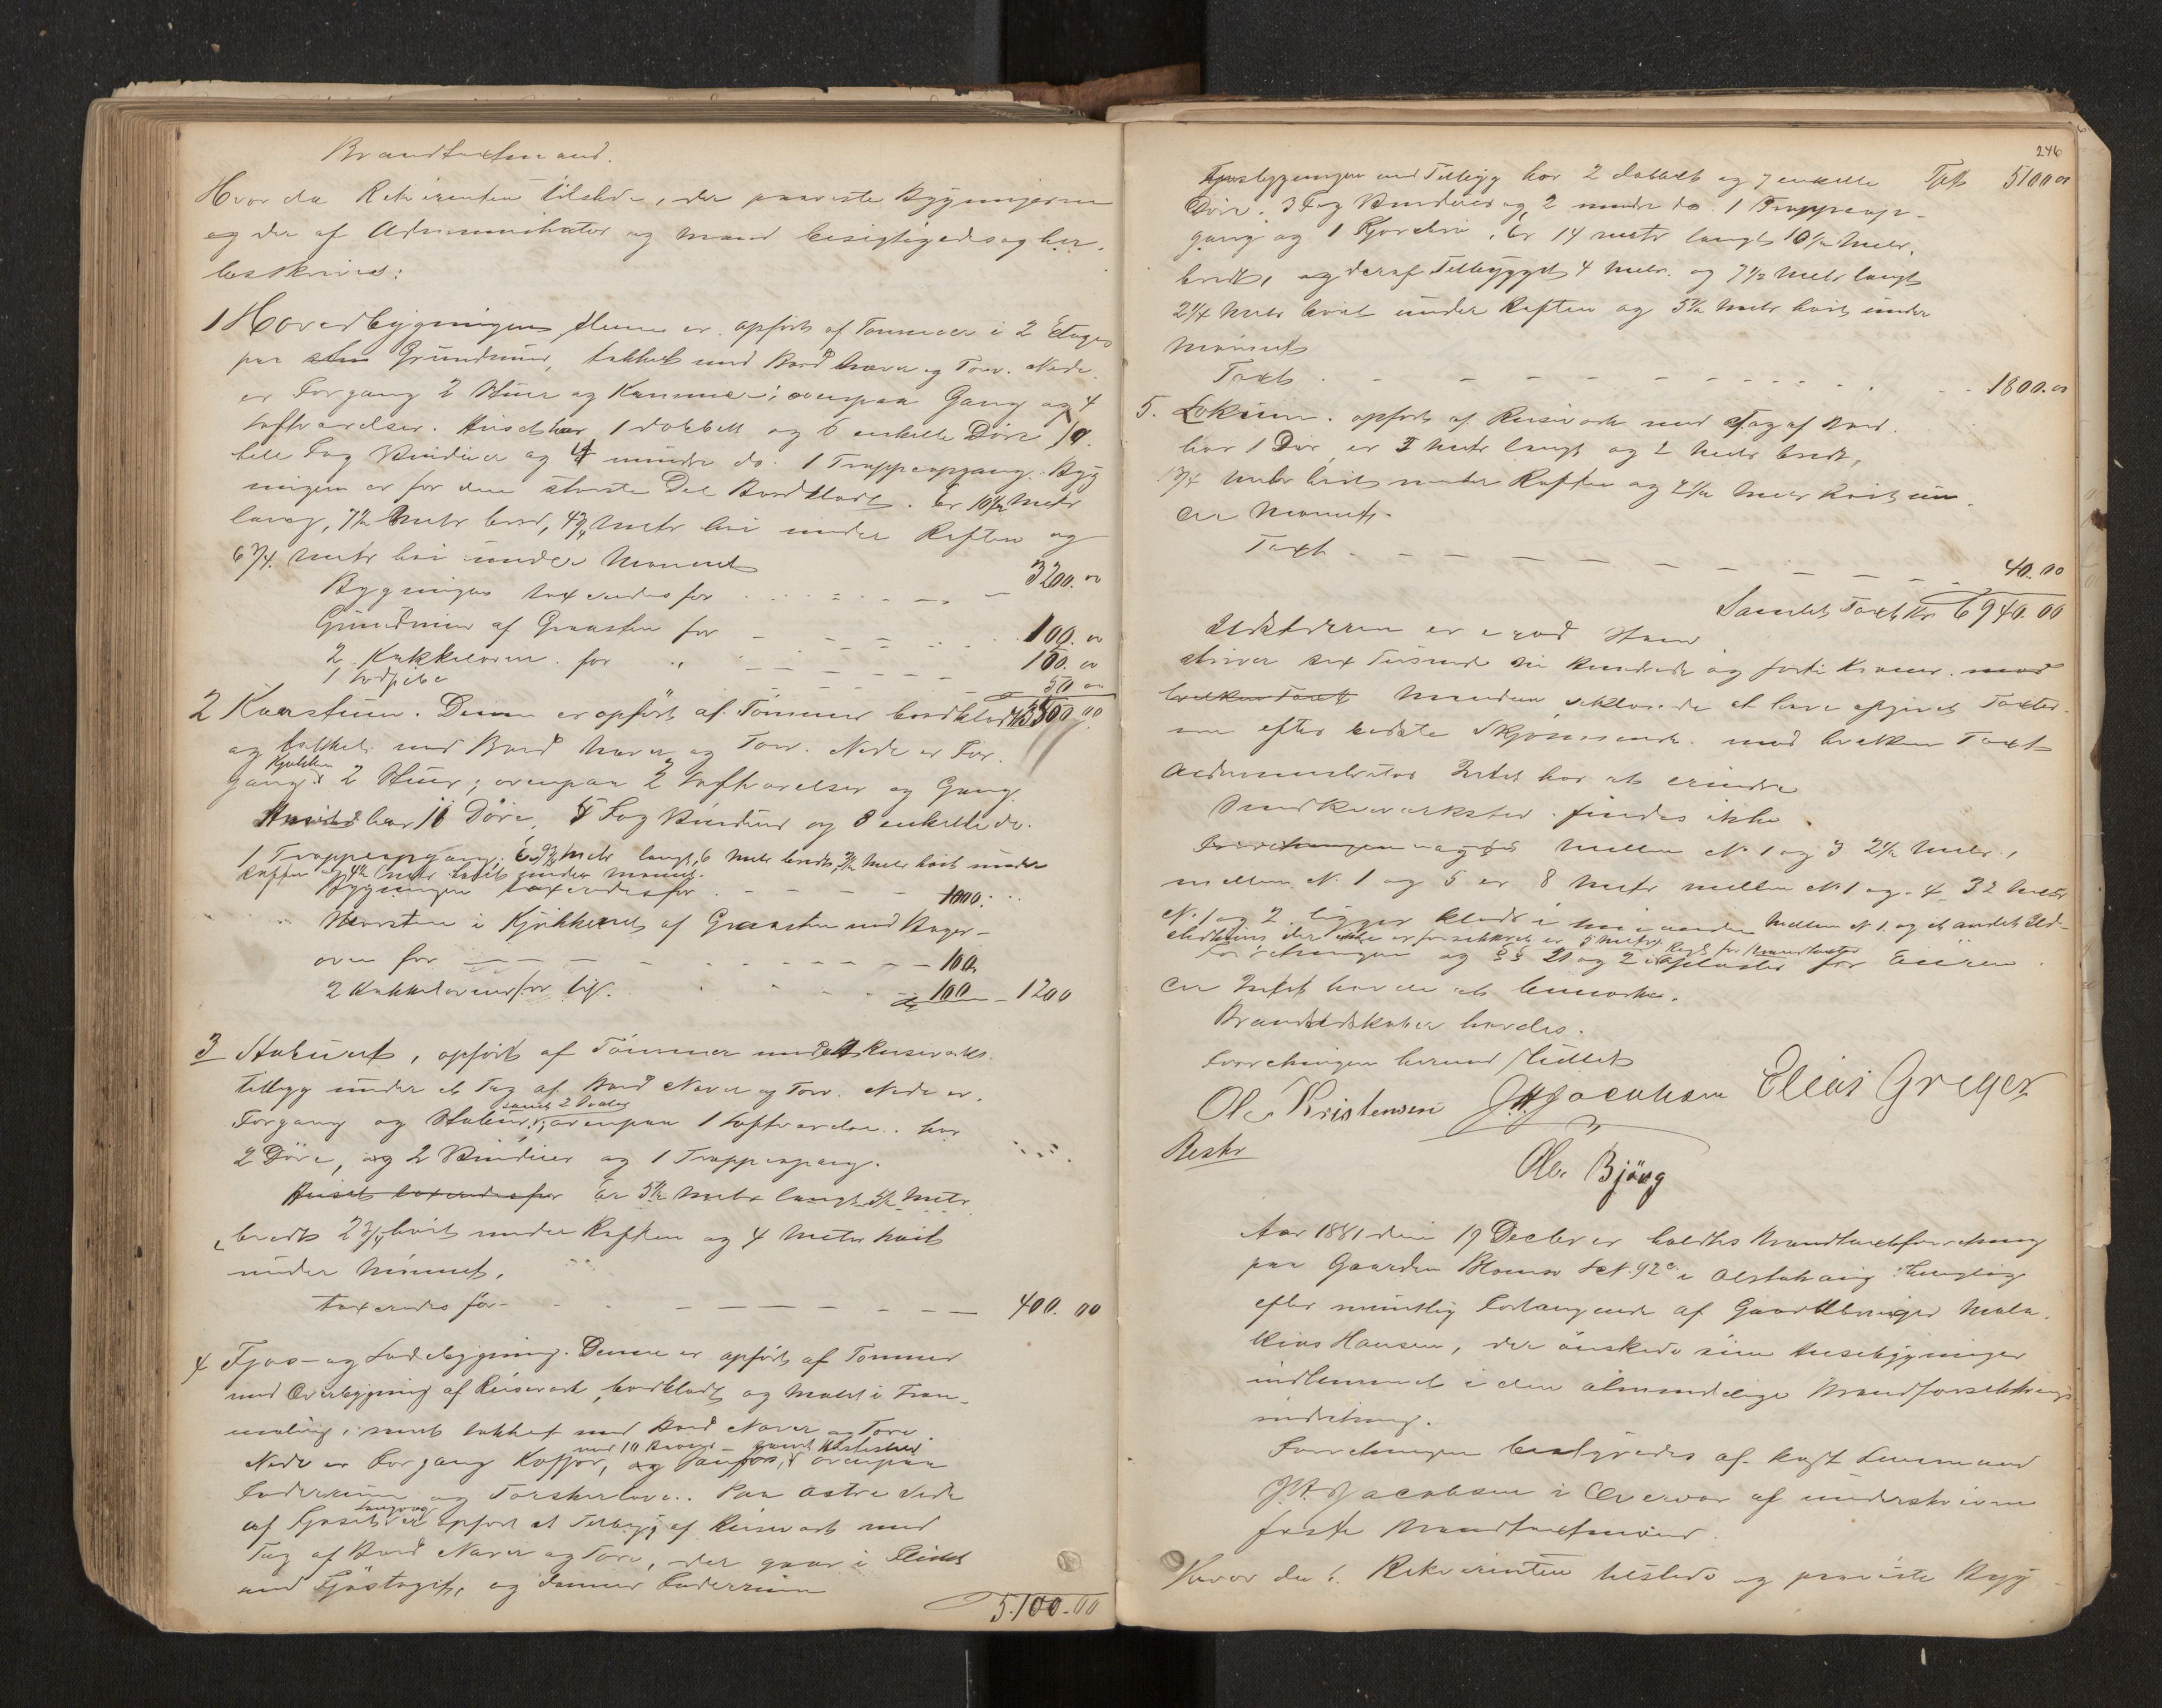 Brandtaxtmænd.
Hvor da Rekvirenten tilstede, der paaviste Bygningerne
og der af Administrator og Mænd besigtigedes og her
beskrives:
1 Hovedbygningen Denne er opført af Tømmer i 2 Etager
paa sten Grundmur, tækket med Bord Næver og Torv. Nede
er Forgang 2 Stuer og Kammer; ovenpaa Gang og 4
Loftværelser. Huset har 1 dobbelt og 6 enkelte Døre 10
hele Fag Vinduer og 4 mindre do. 1 Trappeopgang. Byg
ningen er for den største Del Bordklædt. Er 10½ Metr
lang, 7½ Metr bred, 4¾ Metr høi under Raften og
6¾ Metr høi under Mønnet
Bygningen taxeredes for 3200.00
Grundmur af Graasten for 100.00
2 Kakkelovne for " 100.00
1 50 00
2 Kaarstuen. Denne er opført af Tømmer bordklædt 3500 00
og tækket med Bord Næver og Torv. Nede er For
Kjøkken
gang 2 Stuer; ovenpaa 2 Loftværelser og Gang.
Huset har 11 Døre, 5 Fag Vinduer og 8 enkelte do.
1 Trappeopgang. Er 9¾ Metr langt, 6 Metr bredt, Metr høit under
Raften og 4½ Metr høit under Mønnet.
Bygningen taxeredes for 1000.
Skorsten i Kjøkkenet af Graasten med Bager-
oven for 100
2 Kakkelovne for 100 – 1200
3 Staburet, opført af Tømmer med et Reisværks
Tilbyg under et Tag af Bord Næver og Torv. Nede er
samt 2 Boder
Forgang og Stabur, ovenpaa 1 Loftværelse. har
2 Døre, og 2 Vinduer og 1 Trappeopgang.
Huset taxeredes for Er 5½ Metr langt 5½ Metr
bredt 2¾ høit under Raften og 4 Meter høit
under Mønnet.
taxeredes for 400.00
4 Fjøs- og Ladebygning. Denne er opført af Tømmer
med Overbygning af Reisværk, bordklædt og Malet i Tran-
maling, samt tækket med Bord Næver og Torv
med 10 Baaser – samt Hestestald
Nede er Forgang Kofjøs, og Saufjøs, ovenpaa
Foderrum og Tærskelove. Paa østre Side
af Fjøset er opført et Tilbyg af Reisværk med
Tag af Bord Næver og Torv, der gaar i Flidt
med Fjøstaget, og danner Foderrum
5.100.00
246
Fjøsbygningen med Tilbyg har 2 dobbelt og 7 enkelte Tsp 5100 00
Døre. 3 Fag Vinduer og 2 mindre do. 1 Trappeop-
gang og 1 Kjørebro. Er 14 metr langt 10½ Metr
bredt, og deraf Tilbygget 4 Metr. og 7½ Metr langt
2¼ Metr høit under Raften og 5½ Metr høit under
Mønnet
Taxt 1800.00
5. Lokum. opført af Reisværk med Tag af Bord.
har 1 Dør, er 3 Metr langt og 2 Metr bredt,
1¾ Metr høit under Raften og 2½ Metr høit un
der Mønnet.
Taxt 40.00
Samlet Taxt Kr 6940.00
Ildstederne er i god Stand
skriver sex Tusinde Ni Hundrede og forti Kroner. med
hvilken Taxt Mændene erklærede at have afgivet Taxter-
ne efter bedste Skjønnende. mod hvilken Taxt
Administrator Intet har at erindre
Smedkeværksted findes ikke.
Forretningen Mellem No 1 og 3 2½ Metr.,
mellem No 1 og 5 er 8 Metr mellem No 1 og 4 32 Metr
No 1 og 2 ligger klods i hinanden Mellem No 1 og et andet Ild-
stedhuus der ikke er forsikret er 5 Metr. Regl for Brandtaxter
Forretningen og §§ 21 og 2 oplæstes for Eieren
der Intet havde at bemærke.
Brandredskaber havdes.
Forretningen hermed sluttet
Ole Kristensen J. A. Jacobsen Elias Greger
Restr
Ole Bjørg
Aar 1881 den 19 Decbr er holdtes Brandtaxtforretning
paa Gaarden Blomsø Lst. 92c i Alstahaug Thinglag
efter mundtlig Forlangende af Gaardbruger Mala-
kias Hansen, der ønskede sine Husebygninger
indlemmet i den almindelige Brandforsikkrings
indretning.
Forretningen bestyredes af kost Lensmand
J. A. Jacobsen i Overvær af underskrevne
faste Brandtaxtmænd.
Hvor da b. Rekvirenten tilstede og paaviste Byg